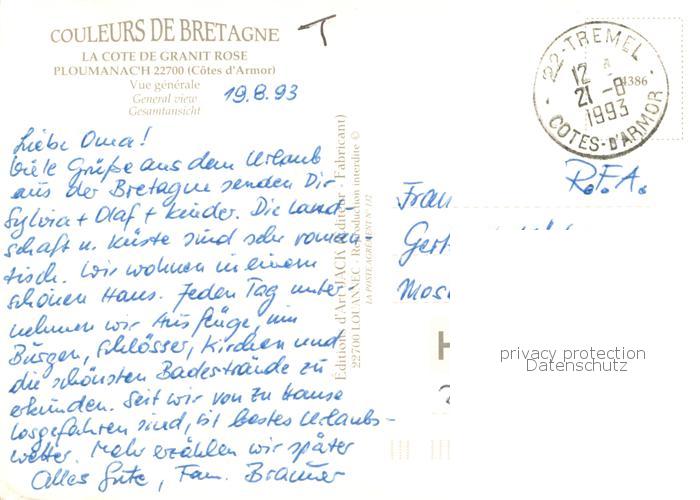 COULEURS DE BRETAGNE
LA COTE DE GRANIT ROSE
PLOUMANAC'H 22700 (Côtes d'Armor)
Vue générale
General view
Gesamtansicht
19.8.93
T
22-TREMEL
12
21-8
1993
COTES-D'ARMOR
4386
Liebe Oma!
Viele Grüße aus dem Urlaub
aus der Bretagne senden Dir
Sylvia + Olaf + Kinder. Die Land-
schaft u. Küste sind sehr roman-
tisch. Wir wohnen in einem
schönen Haus. Jeden Tag unter-
nehmen wir Ausflüge, um
Burgen, Schlösser, Kirchen und
die schönsten Badestrände zu
erkunden. Seit wir von zu Hause
losgefahren sind, ist bestes Urlaubs-
wetter. Mehr erzählen wir später
Alles Gute, Fam.
Editions d'Art JACK (Editeur - Fabricant)
22700 LOUANNEC - Reproduction interdite ©
LA POSTE AGREMENT N° 112
R.F.A.
Fran
Gert
Mos
H
privacy protection
Datenschutz